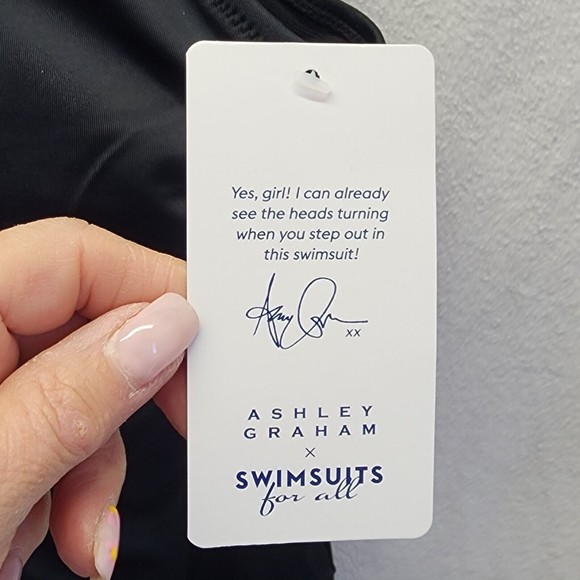 Yes, girl! I can already
see the heads turning
when you step out in
this swimsuit!
xx
ASHLEY
GRAHAM
×
SWIMSUITS
for all